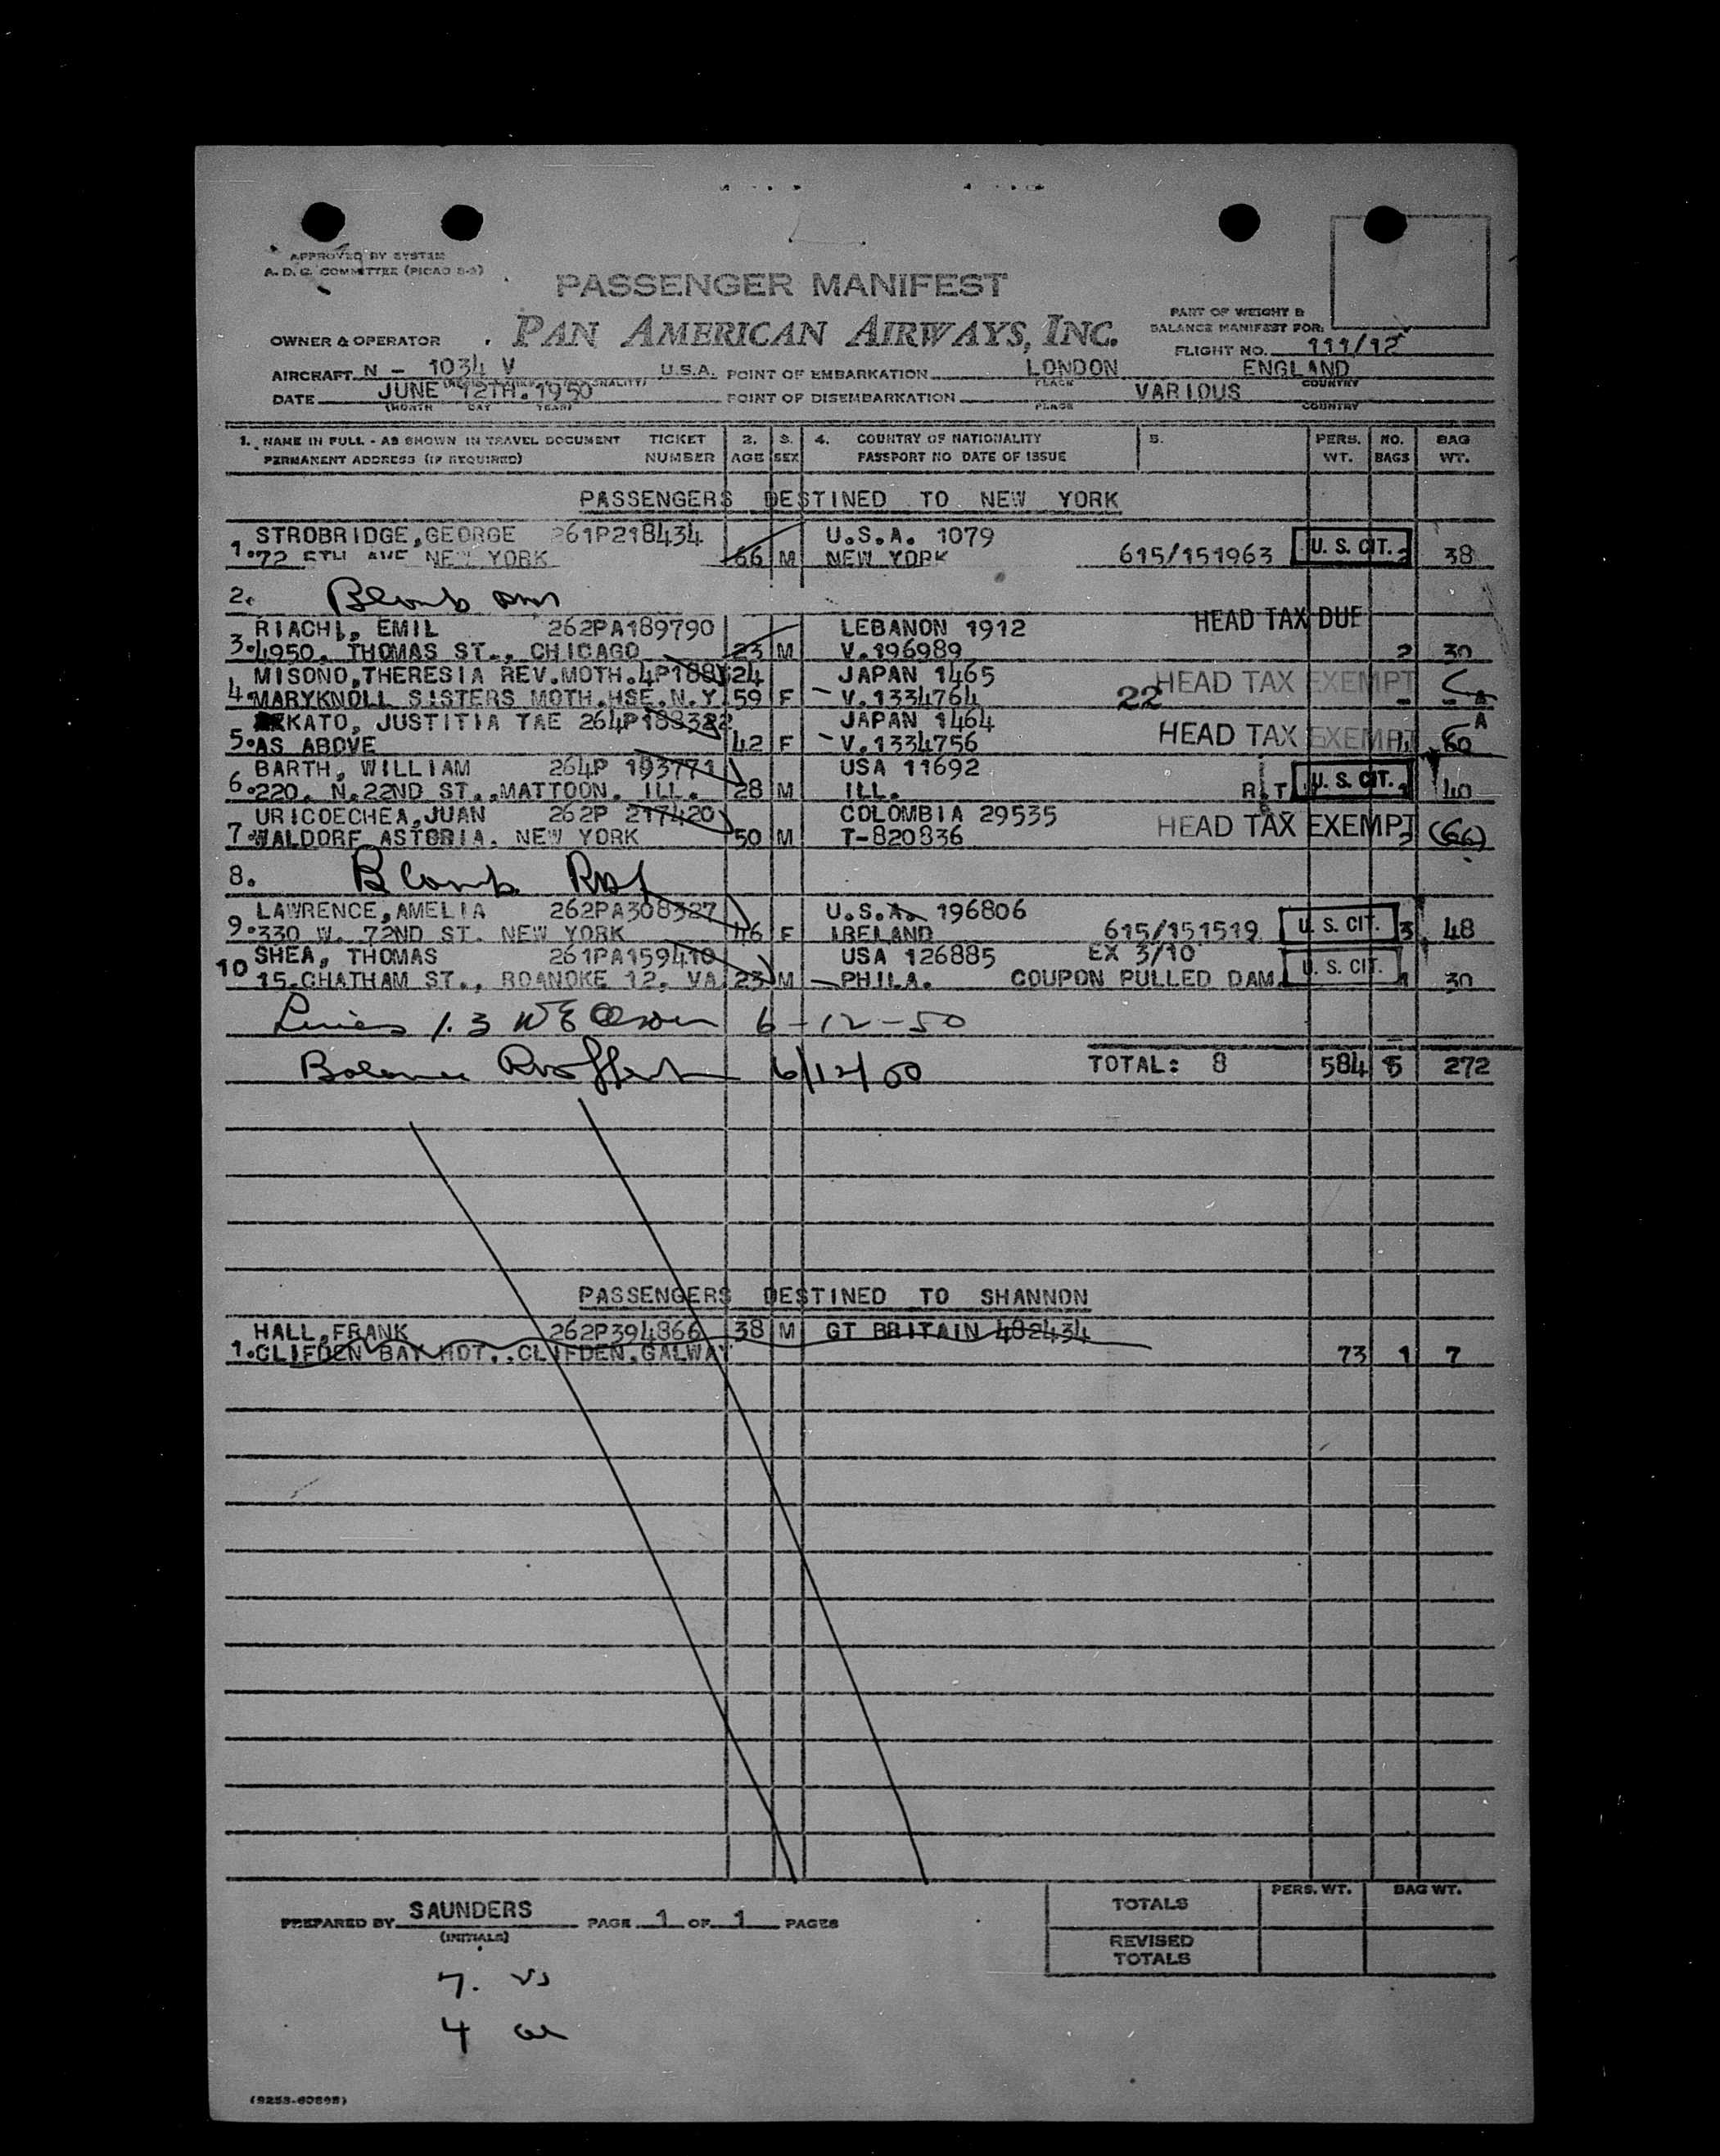 APPROVED BY SYSTEM
A. D. C. COMMITTEE (PICAO 8-3)
PASSENGER MANIFEST
PAN AMERICAN AIRWAYS, INC.
OWNER & OPERATOR
PART OF WEIGHT &
BALANCE MANIFEST FOR:
FLIGHT NO. 111/12
AIRCRAFT N - 1034 V U.S.A. POINT OF EMBARKATION LONDON ENGLAND
PLACE COUNTRY
DATE JUNE 12TH. 1950 POINT OF DISEMBARKATION VARIOUS
(MONTH DAY YEAR) PLACE COUNTRY
1. NAME IN FULL - AS SHOWN IN TRAVEL DOCUMENT TICKET 2. 3. 4. COUNTRY OF NATIONALITY 5. PERS. NO. BAG
PERMANENT ADDRESS (IF REQUIRED) NUMBER AGE SEX PASSPORT NO DATE OF ISSUE WT. BAGS WT.
PASSENGERS DESTINED TO NEW YORK
STROBRIDGE,GEORGE 261P218434 U.S.A. 1079
1. 72 5TH AVE NEW YORK 66 M NEW YORK 615/151963 U. S. CIT. 2 38
2. Blank
RIACHI, EMIL 262PA189790 LEBANON 1912 HEAD TAX DUE
3. 4950. THOMAS ST., CHICAGO 23 M V.196989 2 30
MISONO,THERESIA REV.MOTH. JAPAN 1465 HEAD TAX EXEMPT
4. MARYKNOLL SISTERS MOTH.HSE.N.Y 59 F V.1334764 22 - -
KATO, JUSTITIA TAE 264P188322 JAPAN 1464 A
5. AS ABOVE 42 F V.1334756 HEAD TAX EXEMPT 60
BARTH, WILLIAM 264P 193771 USA 11692
6. 220. N.22ND ST.,MATTOON. ILL. 28 M ILL. R.T. U. S. CIT. 1 40
URICOECHEA,JUAN 262P 217420 COLOMBIA 29535
7. WALDORF ASTORIA. NEW YORK 50 M T-820836 HEAD TAX EXEMPT (66)
8. Blank
LAWRENCE,AMELIA 262PA308327 U.S.A. 196806
9. 330 W. 72ND ST. NEW YORK 46 F IRELAND 615/151519 U. S. CIT. 3 48
SHEA, THOMAS 261PA159410 USA 126885 EX 3/10
10 15.CHATHAM ST., ROANOKE 12, VA 23 M PHILA. COUPON PULLED DAM. U. S. CIT. 1 30
6-12-50
Balance 6/12/50 TOTAL: 8 584 272
PASSENGERS DESTINED TO SHANNON
HALL,FRANK 262P394866 38 M GT BRITAIN 482434
1. CLIFDEN BAY HOT,.CLIFDEN.GALWAY 73 1 7
PERS. WT. BAG WT.
TOTALS
PREPARED BY SAUNDERS PAGE 1 OF 1 PAGES
(INITIALS)
REVISED
TOTALS
7.
4